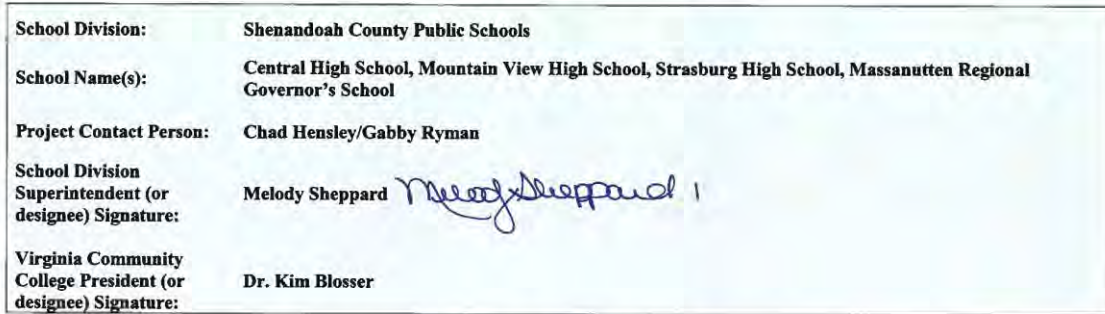 School Division: Shenandoah County Public Schools
School Name(s): Central High School, Mountain View High School, Strasburg High School, Massanutten Regional
Governor's School
Project Contact Person: Chad Hensley/Gabby Ryman
School Division
Superintendent (or
designee) Signature:
Melody Sheppard Melody Sheppard
Virginia Community
College President (or
designee) Signature:
Dr. Kim Blosser